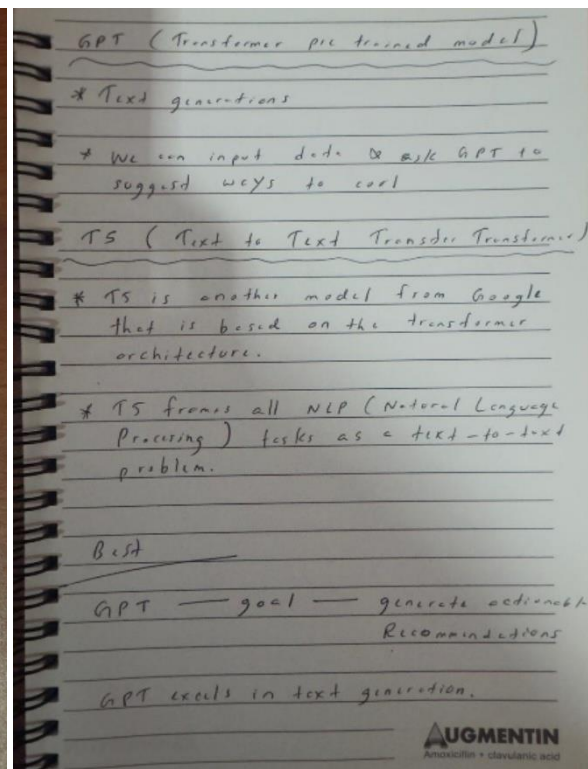 GPT (Transformer pre trained model)
* Text generations
* We can input data & ask GPT to
suggest ways to
T5 (Text to Text Transfer Transformer)
* T5 is another model from Google
that is based on the transformer
architecture.
* T5 frames all NLP (Natural Language
Processing) tasks as a text-to-text
problem.
Best
GPT — goal — generate actionable
Recommendations
GPT excels in text generation.
AUGMENTIN
Amoxicillin + clavulanic acid